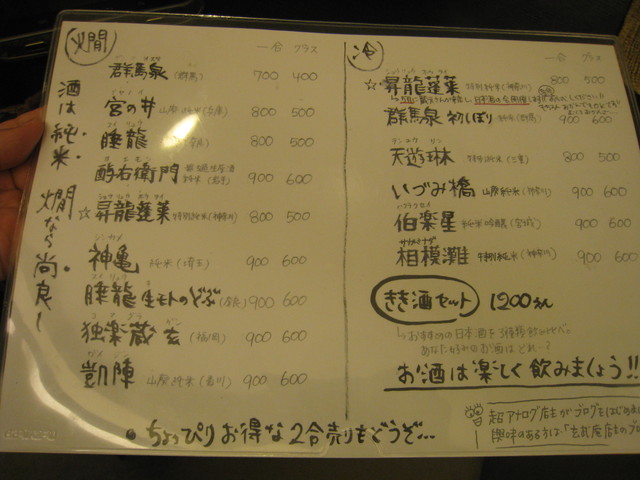 燗
一合 グラス
酒は純米、燗なら尚良し
群馬泉 (群馬) 700 400
宮の井 山廃純米 800 500
睡龍 800 500
酉与右衛門 純米(岩手) 900 600
☆昇龍蓬莱 特別純米(神奈川) 800 500
神亀 純米(埼玉) 900 600
睡龍 生モトのどぶ (奈良) 900 600
独楽蔵 玄 (福岡) 900 600
凱陣 山廃純米(香川) 900 600
冷
一合 グラス
☆昇龍蓬莱 特別純米(神奈川) 800 500
群馬泉 初しぼり 純米(群馬) 900 600
天遊琳 特別純米(三重) 800 500
いづみ橋 山廃純米(神奈川) 900 600
伯楽星 純米吟醸(宮城) 900 600
相模灘 特別純米(神奈川) 900 600
きき酒セット 1200えん
↳おすすめの日本酒を3種類飲みくらべ。
あなた好みのお酒はどれ…?
お酒は楽しく飲みましょう!!
• ちょっぴりお得な2合売りもどうぞ…
超アナログ店主がブログをはじめま
興味のある方は「玄武庵店主のブロ